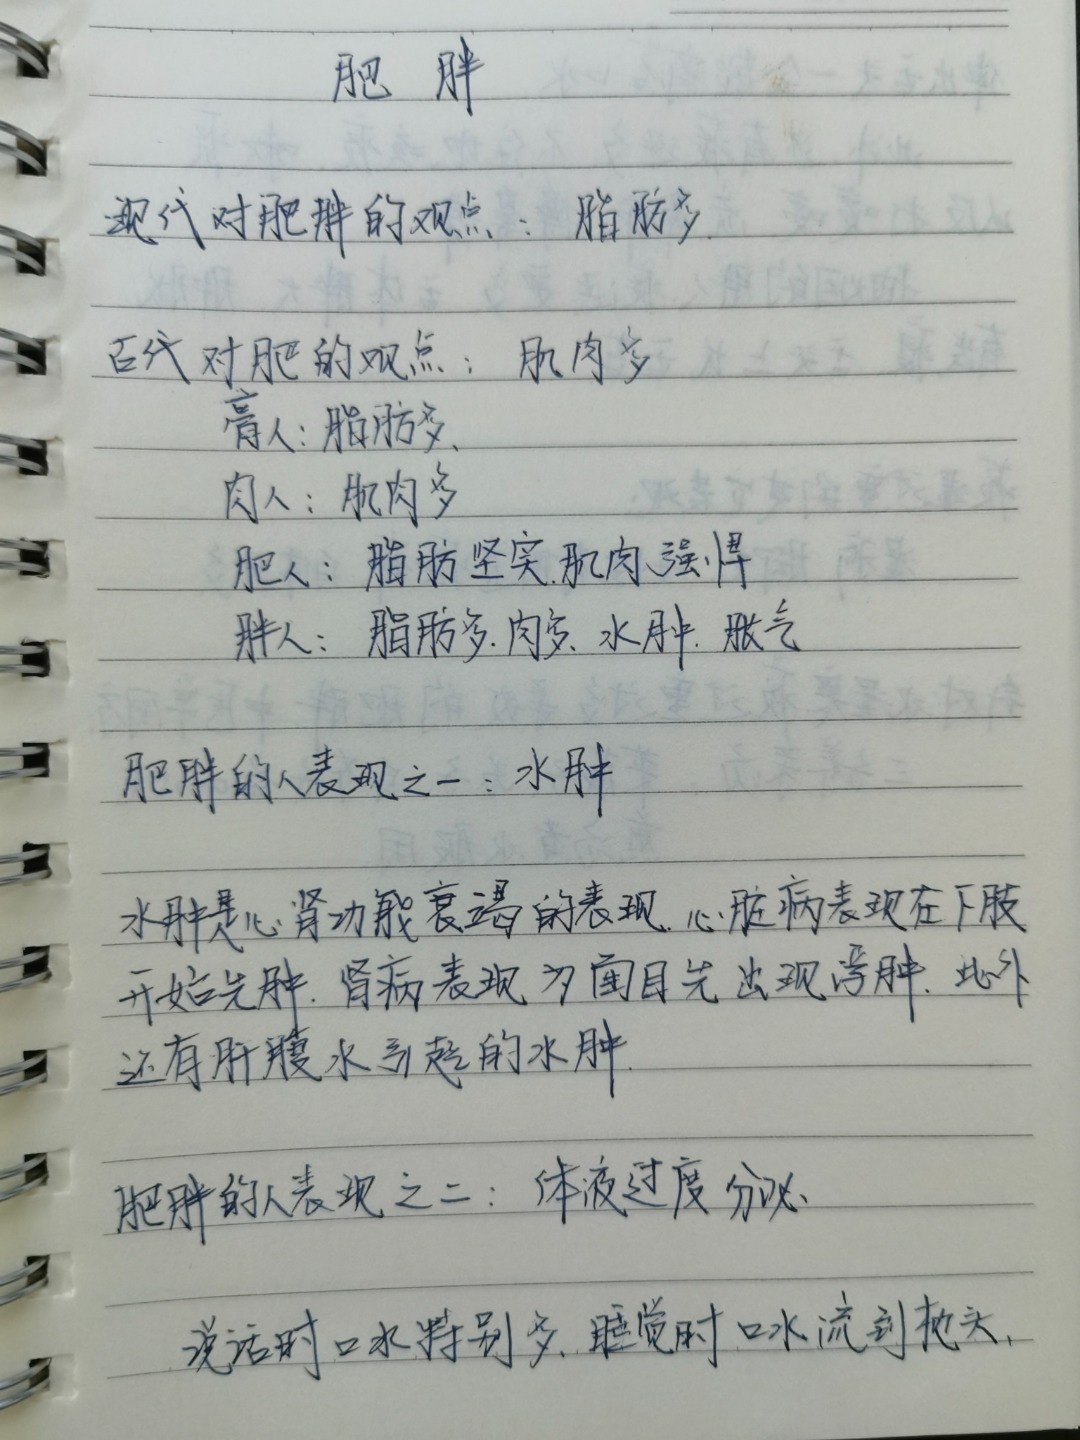 肥 胖
现代对肥胖的观点：脂肪多.
古代对肥的观点：肌肉多
膏人：脂肪多、
肉人：肌肉多
肥人：脂肪坚实.肌肉强悍
胖人：脂肪多.肉多.水肿.胀气
肥胖的人表现之一：水肿
水肿是心肾功能衰竭的表现.心脏病表现在下肢
开始先肿.肾病表现为面目先出现浮肿.此外
还有肝腹水引起的水肿.
肥胖的人表现之二：体液过度分泌、
说话时口水特别多.睡觉时口水流到枕头，